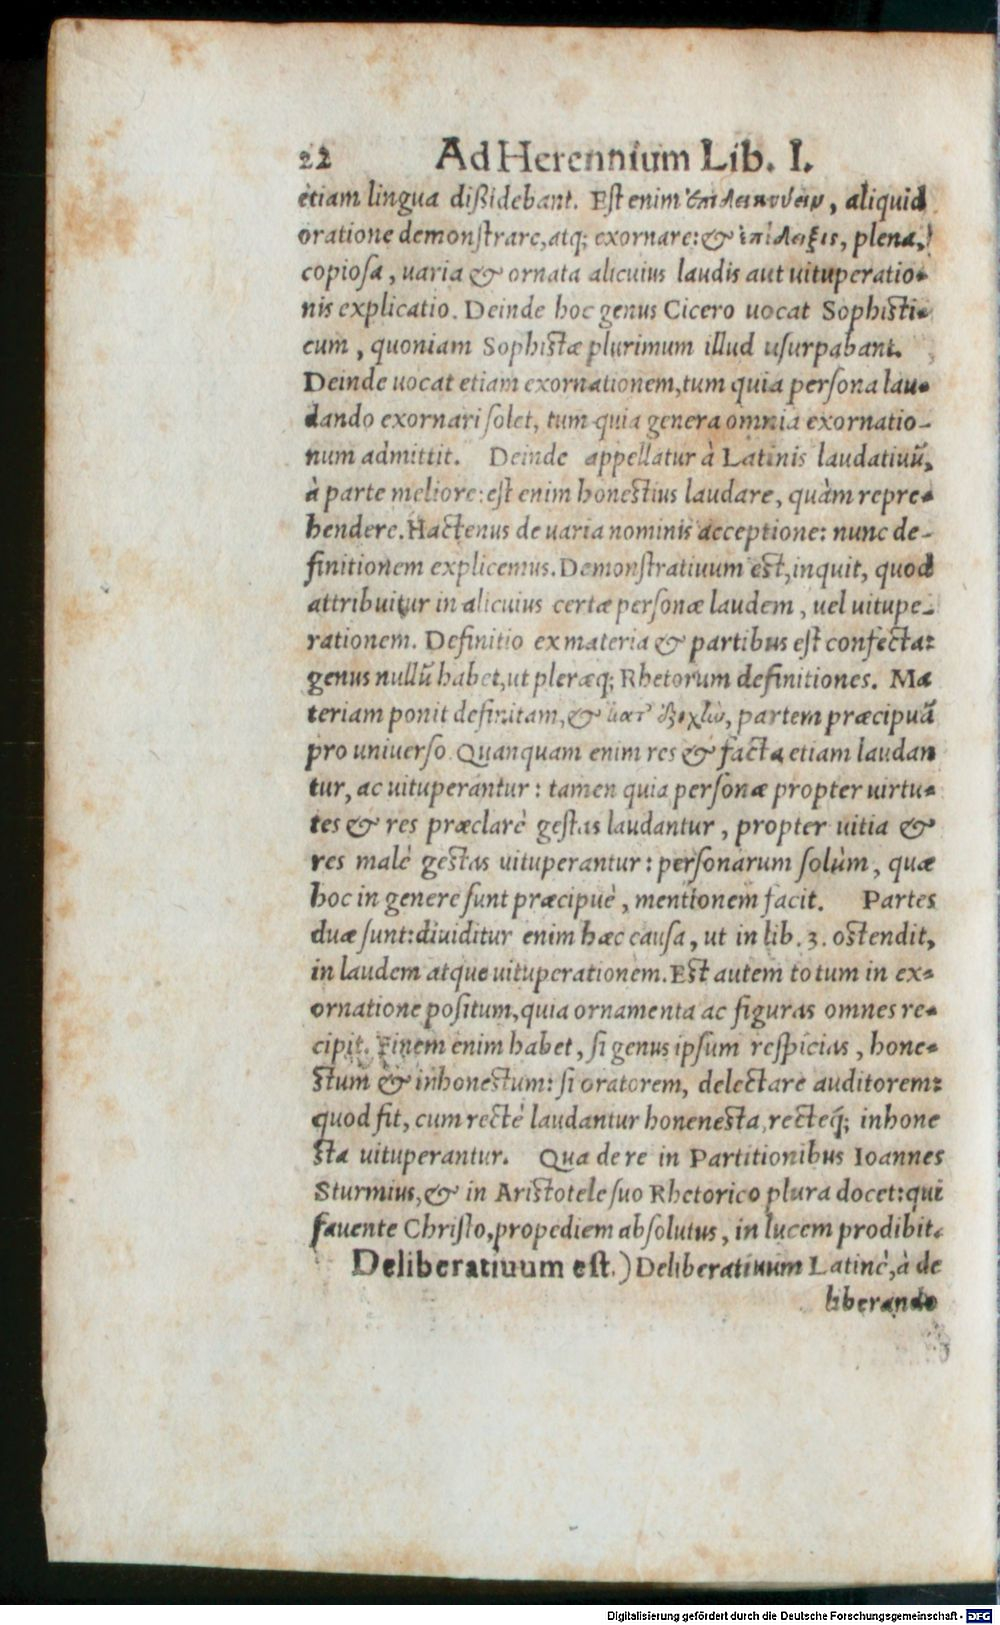 22 Ad Herennium Lib. I.
etiam lingua dißidebant. Est enim ἐπιδεικνύειν, aliquid
oratione demonstrare, atq; exornare: & ἐπίδειξις, plena,
copiosa, uaria & ornata alicuius laudis aut uituperatio-
nis explicatio. Deinde hoc genus Cicero uocat Sophisti-
cum, quoniam Sophistæ plurimum illud usurpabant.
Deinde uocat etiam exornationem, tum quia persona lau-
dando exornari solet, tum quia genera omnia exornatio-
num admittit. Deinde appellatur à Latinis laudatiuũ,
à parte meliore: est enim honestius laudare, quàm repre-
hendere. Hactenus de uaria nominis acceptione: nunc de-
finitionem explicemus. Demonstratiuum est, inquit, quod
attribuitur in alicuius certæ personæ laudem, uel uitupe-
rationem. Definitio ex materia & partibus est confecta:
genus nullũ habet, ut pleræq; Rhetorum definitiones. Ma
teriam ponit definitam, & ἐξοχὼ, partem præcipuã
pro uniuerso. Quanquam enim res & facta etiam laudan
tur, ac uituperantur: tamen quia personæ propter uirtu-
tes & res præclarè gestas laudantur, propter uitia &
res malè gestas uituperantur: personarum solùm, quæ
hoc in genere sunt præcipuè, mentionem facit. Partes
duæ sunt: diuiditur enim hæc causa, ut in lib. 3. ostendit,
in laudem atque uituperationem. Est autem totum in ex-
ornatione positum, quia ornamenta ac figuras omnes re-
cipit. Finem enim habet, si genus ipsum respicias, hone-
stum & inhonestum: si oratorem, delectare auditorem:
quod fit, cum rectè laudantur honenesta, recteq́; inhone
sta uituperantur. Qua de re in Partitionibus Ioannes
Sturmius, & in Aristotele suo Rhetorico plura docet: qui
fauente Christo, propediem absolutus, in lucem prodibit.
Deliberatiuum est.) Deliberatiuum Latinè, à de
liberando
Digitalisierung gefördert durch die Deutsche Forschungsgemeinschaft - DFG